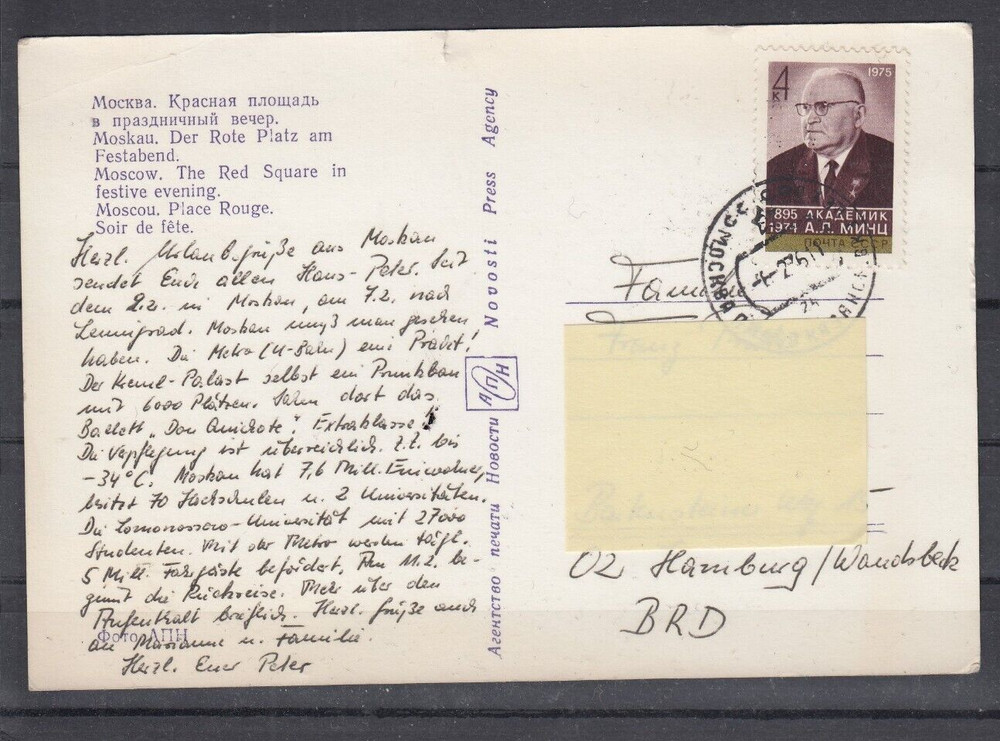 Москва. Красная площадь
в праздничный вечер.
Moskau. Der Rote Platz am
Festabend.
Moscow. The Red Square in
festive evening.
Moscou. Place Rouge.
Soir de fête.
Herzl. Urlaubsgrüße aus Moskau
sendet Euch allen Hans-Peter. Seit
dem 2.2. in Moskau, am 7.2. nach
Leningrad. Moskau muß man gesehen
haben. Die Metro (U-Bahn) eine Pracht!
Der Kreml-Palast selbst ein Prunkbau
mit 6000 Plätzen. Sahen dort das
Ballett "Don Quichote". Extraklasse!
Die Verpflegung ist überreichlich. Z.t. bis
-34°C. Moskau hat 7,6 Mill. Einwohner,
besitzt 70 Fachschulen u. 2 Universitäten.
Die Lomonossow-Universität mit 27000
Studenten. Mit der Metro werden tägl.
5 Mill. Fahrgäste befördert. Am 11.2. be-
ginnt die Rückreise. Mehr über den
Aufenthalt brieflich. Herzl. Grüße auch
an Marianne u. Familie.
Фото АПН
Herzl. Euer Peter
Агентство печати Новости АПН Novosti Press Agency
4 к
1975
1895 АКАДЕМИК
1974 А.Л. МИНЦ
ПОЧТА СССР
Familie
Franz
02 Hamburg/Wandsbek
BRD